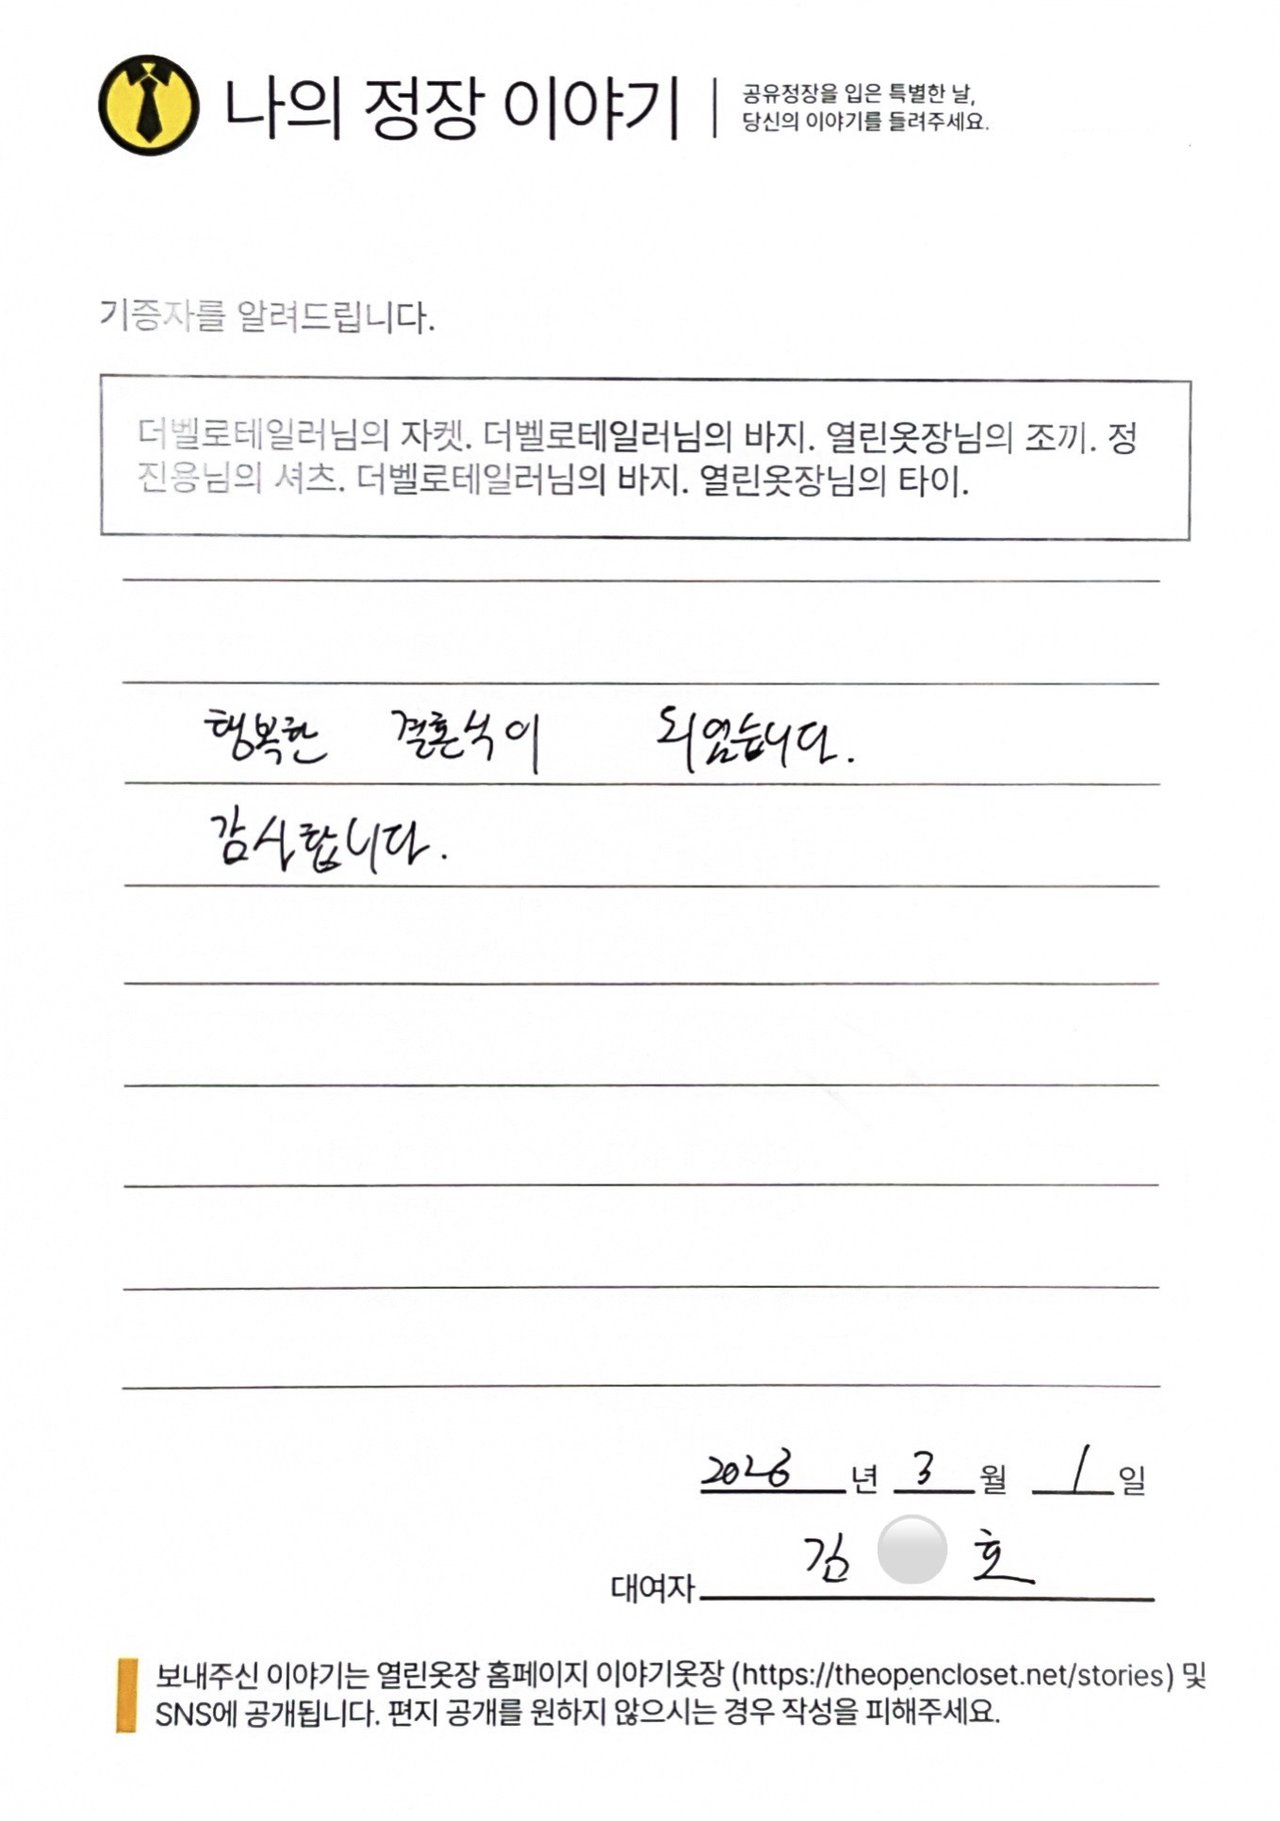 나의 정장 이야기
공유정장을 입은 특별한 날,
당신의 이야기를 들려주세요.
기증자를 알려드립니다.
더벨로테일러님의 자켓. 더벨로테일러님의 바지. 열린옷장님의 조끼. 정
진용님의 셔츠. 더벨로테일러님의 바지. 열린옷장님의 타이.
행복한 결혼식이 되었습니다.
감사합니다.
2026 년 3 월 1 일
김 호
대여자
보내주신 이야기는 열린옷장 홈페이지 이야기옷장 (https://theopencloset.net/stories) 및
SNS에 공개됩니다. 편지 공개를 원하지 않으시는 경우 작성을 피해주세요.